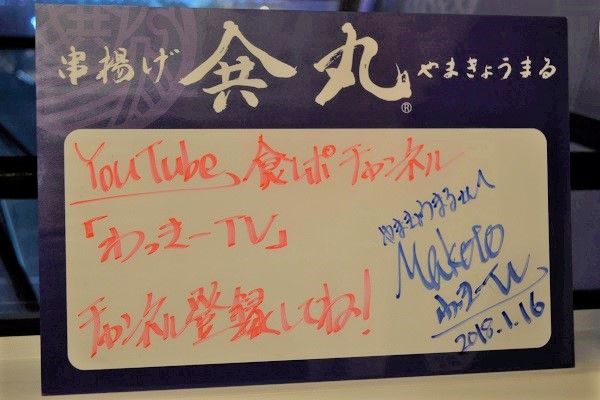 串揚げ 山共丸 ® やまきょうまる
YouTube、食レポチャンネル
「わっきーTV」
チャンネル登録してね!
やまきょうまるさんへ
Makoto
わっきーTV
2018.1.16